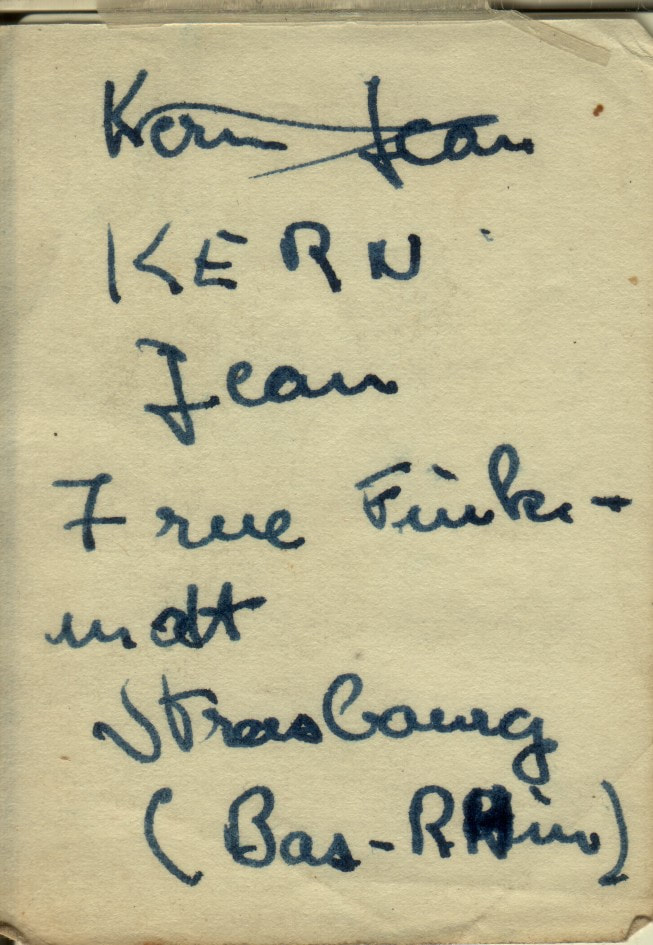 Kern Jean
KERN
Jean
7 rue Finke-
matt
Strasbourg
(Bas-RHin)